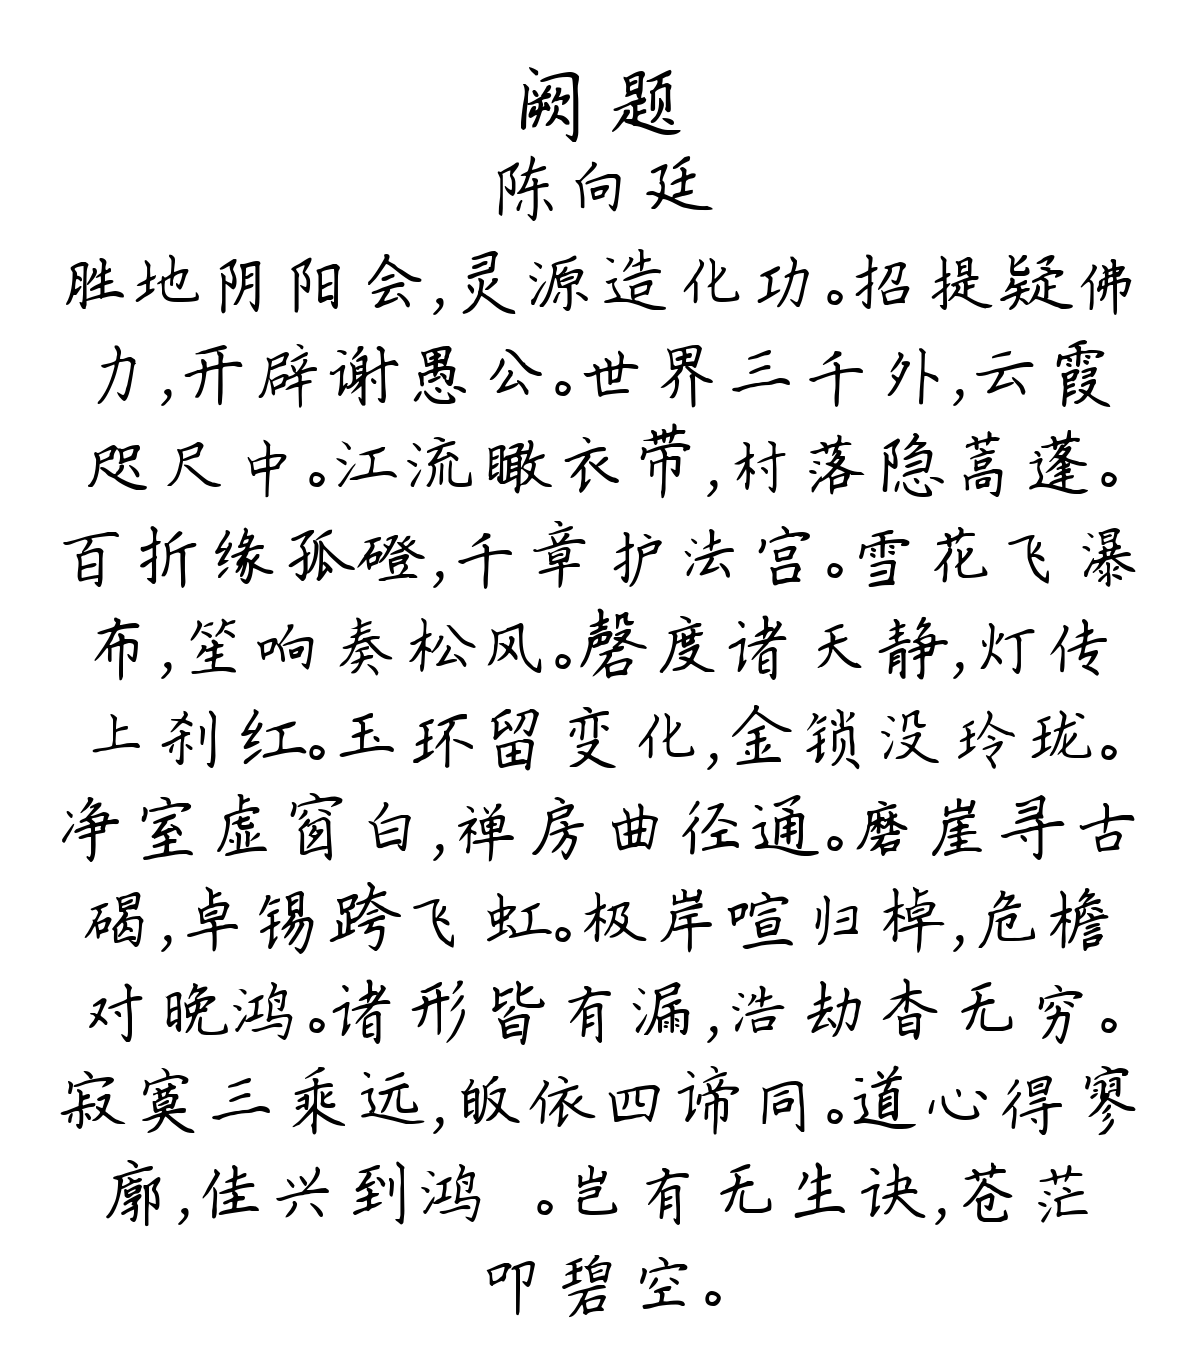 阙题
陈向廷
胜地阴阳会,灵源造化功。招提疑佛
力,开辟谢愚公。世界三千外,云霞
咫尺中。江流瞰衣带,村落隐蒿蓬。
百折缘孤磴,千章护法宫。雪花飞瀑
布,笙响奏松风。磬度诸天静,灯传
上刹红。玉环留变化,金锁没玲珑。
净室虚窗白,禅房曲径通。磨崖寻古
碣,卓锡跨飞虹。极岸喧归棹,危檐
对晚鸿。诸形皆有漏,浩劫杳无穷。
寂寞三乘远,皈依四谛同。道心得寥
廓,佳兴到鸿 。岂有无生诀,苍茫
叩碧空。